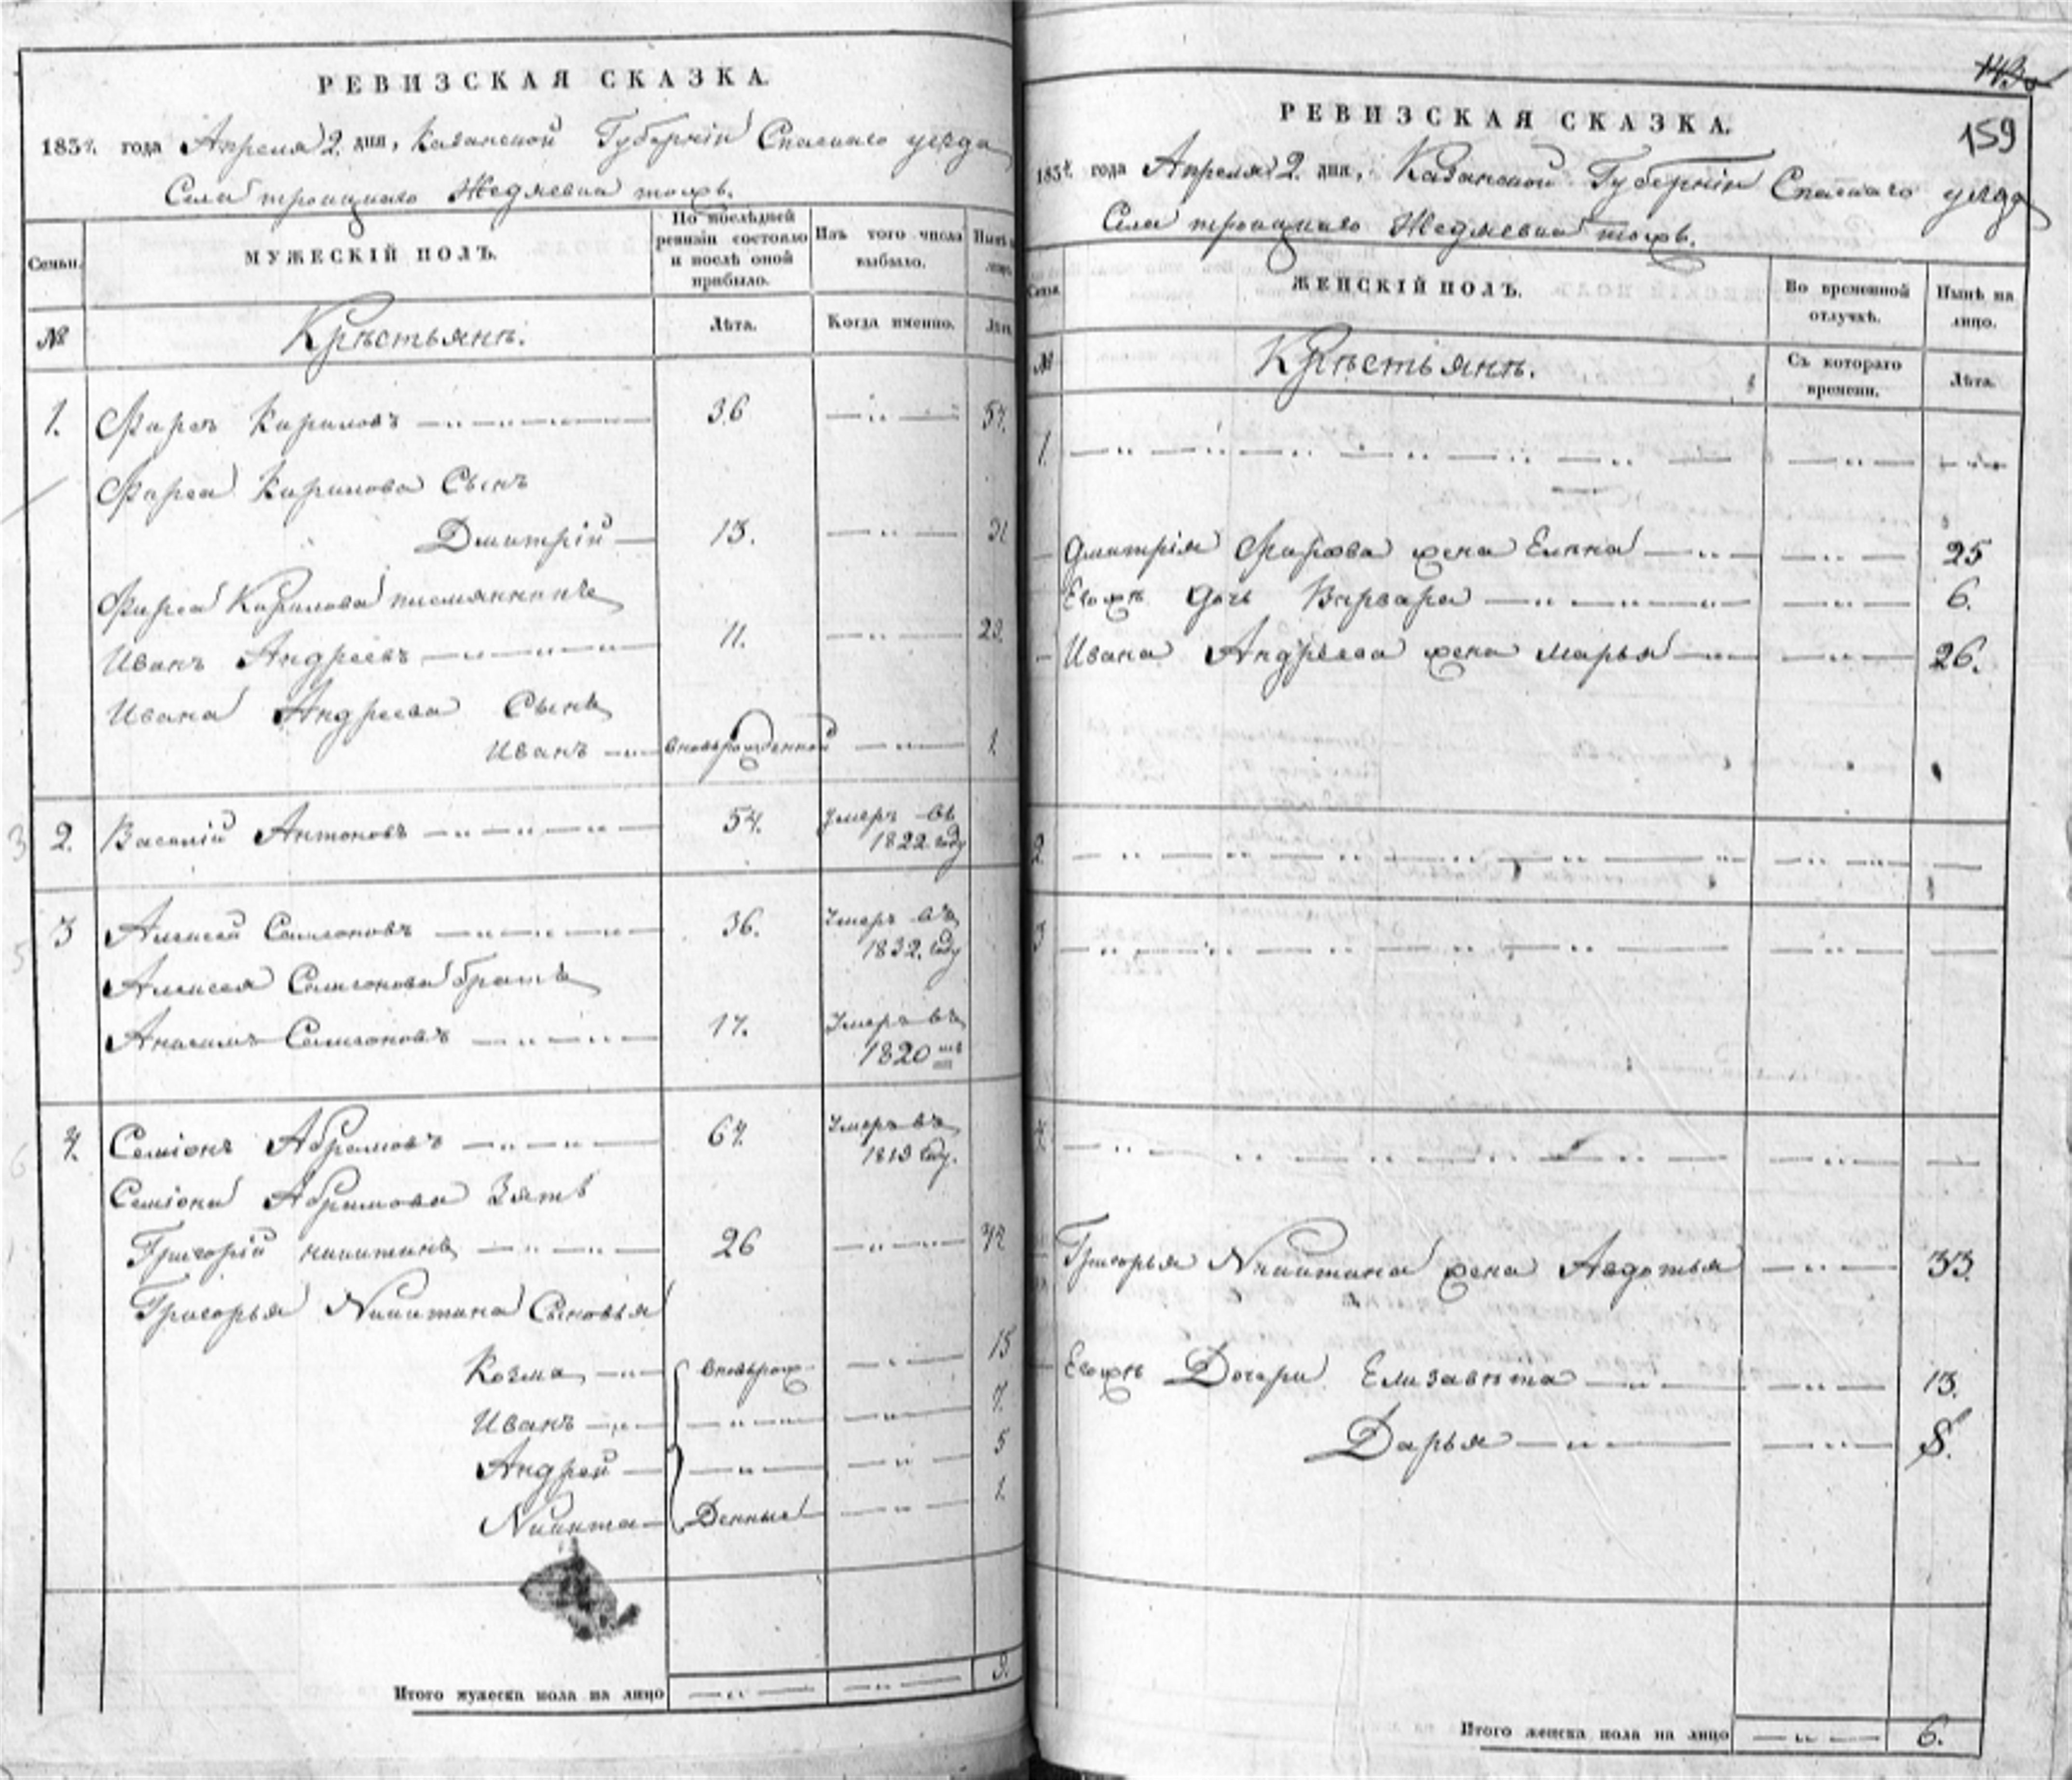 РЕВИЗСКАЯ СКАЗКА.
1834. года Апреля 2. дня, Казанской Губерніи Спаскаго уезда
Села троицкаго Жедяевка тожъ.
Семьи. МУЖЕСКІЙ ПОЛЪ. По послѣдней ревизіи состояло и послѣ оной прибыло. Изъ того числа выбыло. Нынѣ на лицо.
№ Крѣстьянѣ. Лѣта. Когда именно. Лѣта.
1. Фирсъ Кириловъ 36 54.
Фирса Кирилова Сынъ
Дмитрій 13. 31
Фирса Кирилова племянникъ
Иванъ Андреевъ 11. 29.
Ивана Андреева Сынъ
Иванъ вновьрожденной 1.
2. Василій Антоновъ 54. Умеръ въ
1822 году
3 Алексей Семионовъ 36. Умеръ въ
1832. году
Алексея Семионова братъ
Анисимъ Семионовъ 17. Умеръ въ
1820 мъ
4. Семіонъ Абрамовъ 64. Умеръ въ
1819 году.
Семіона Абрамова Зять
Григорій никитинъ 26 44
Григорья Никитина Сыновья
Козма вновьрож- 15
Иванъ 7.
Андрей 5
Никита Денные 1.
Итого мужеска пола на лицо 9.
143
159
РЕВИЗСКАЯ СКАЗКА.
1834. года Апреля 2. дня, Казанской Губерніи Спаскаго уезда
Села троицкаго Жедяевка тожъ.
Семьи. ЖЕНСКІЙ ПОЛЪ. Во временной отлучкѣ. Нынѣ на лицо.
№ Крѣстьянѣ. Съ котораго времени. Лѣта.
1.
Дмитрія Фирсова жена Елена 25
Евожъ дочь Варвара 6.
Ивана Андреева жена марья 26.
2
3
4.
Григорья Никитина жена Авдотья 33.
Евожъ Дочери Елизавѣта 13.
Дарья 8.
Итого женска пола на лицо 6.